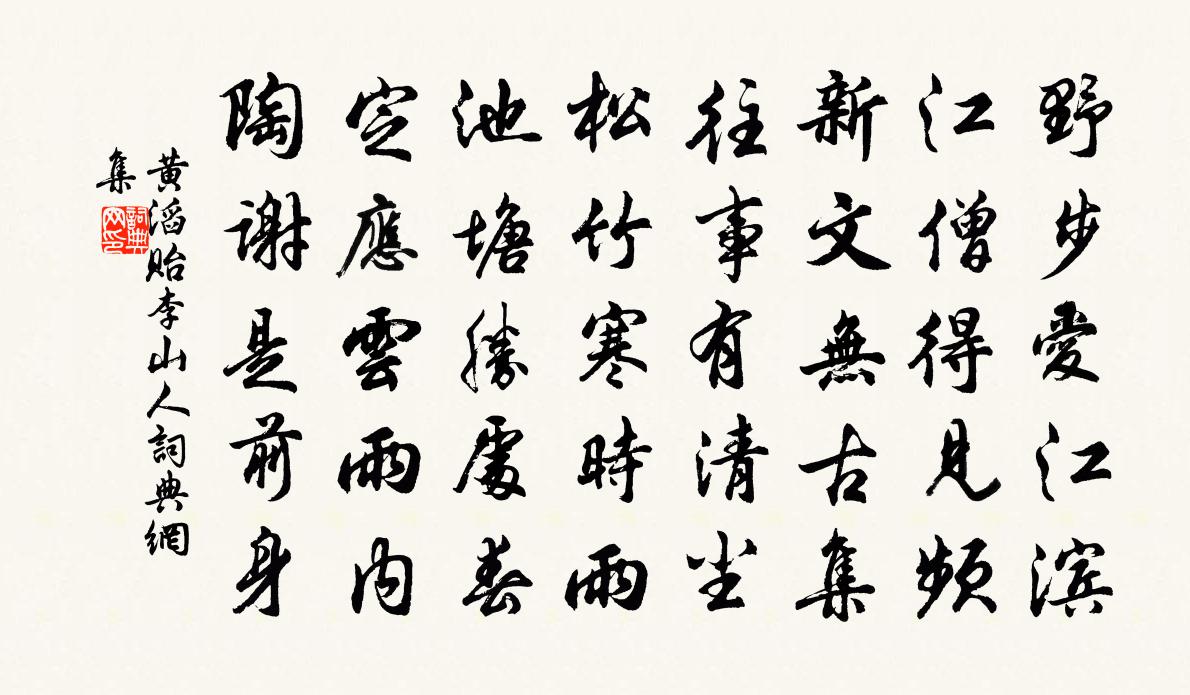 野步愛江滨
江僧得見頻
新文無古集
往事有清尘
松竹寒時雨
池塘勝處春
定應雲雨内
陶謝是前身
黄滔貽李山人詞典網
集
詞典
网印